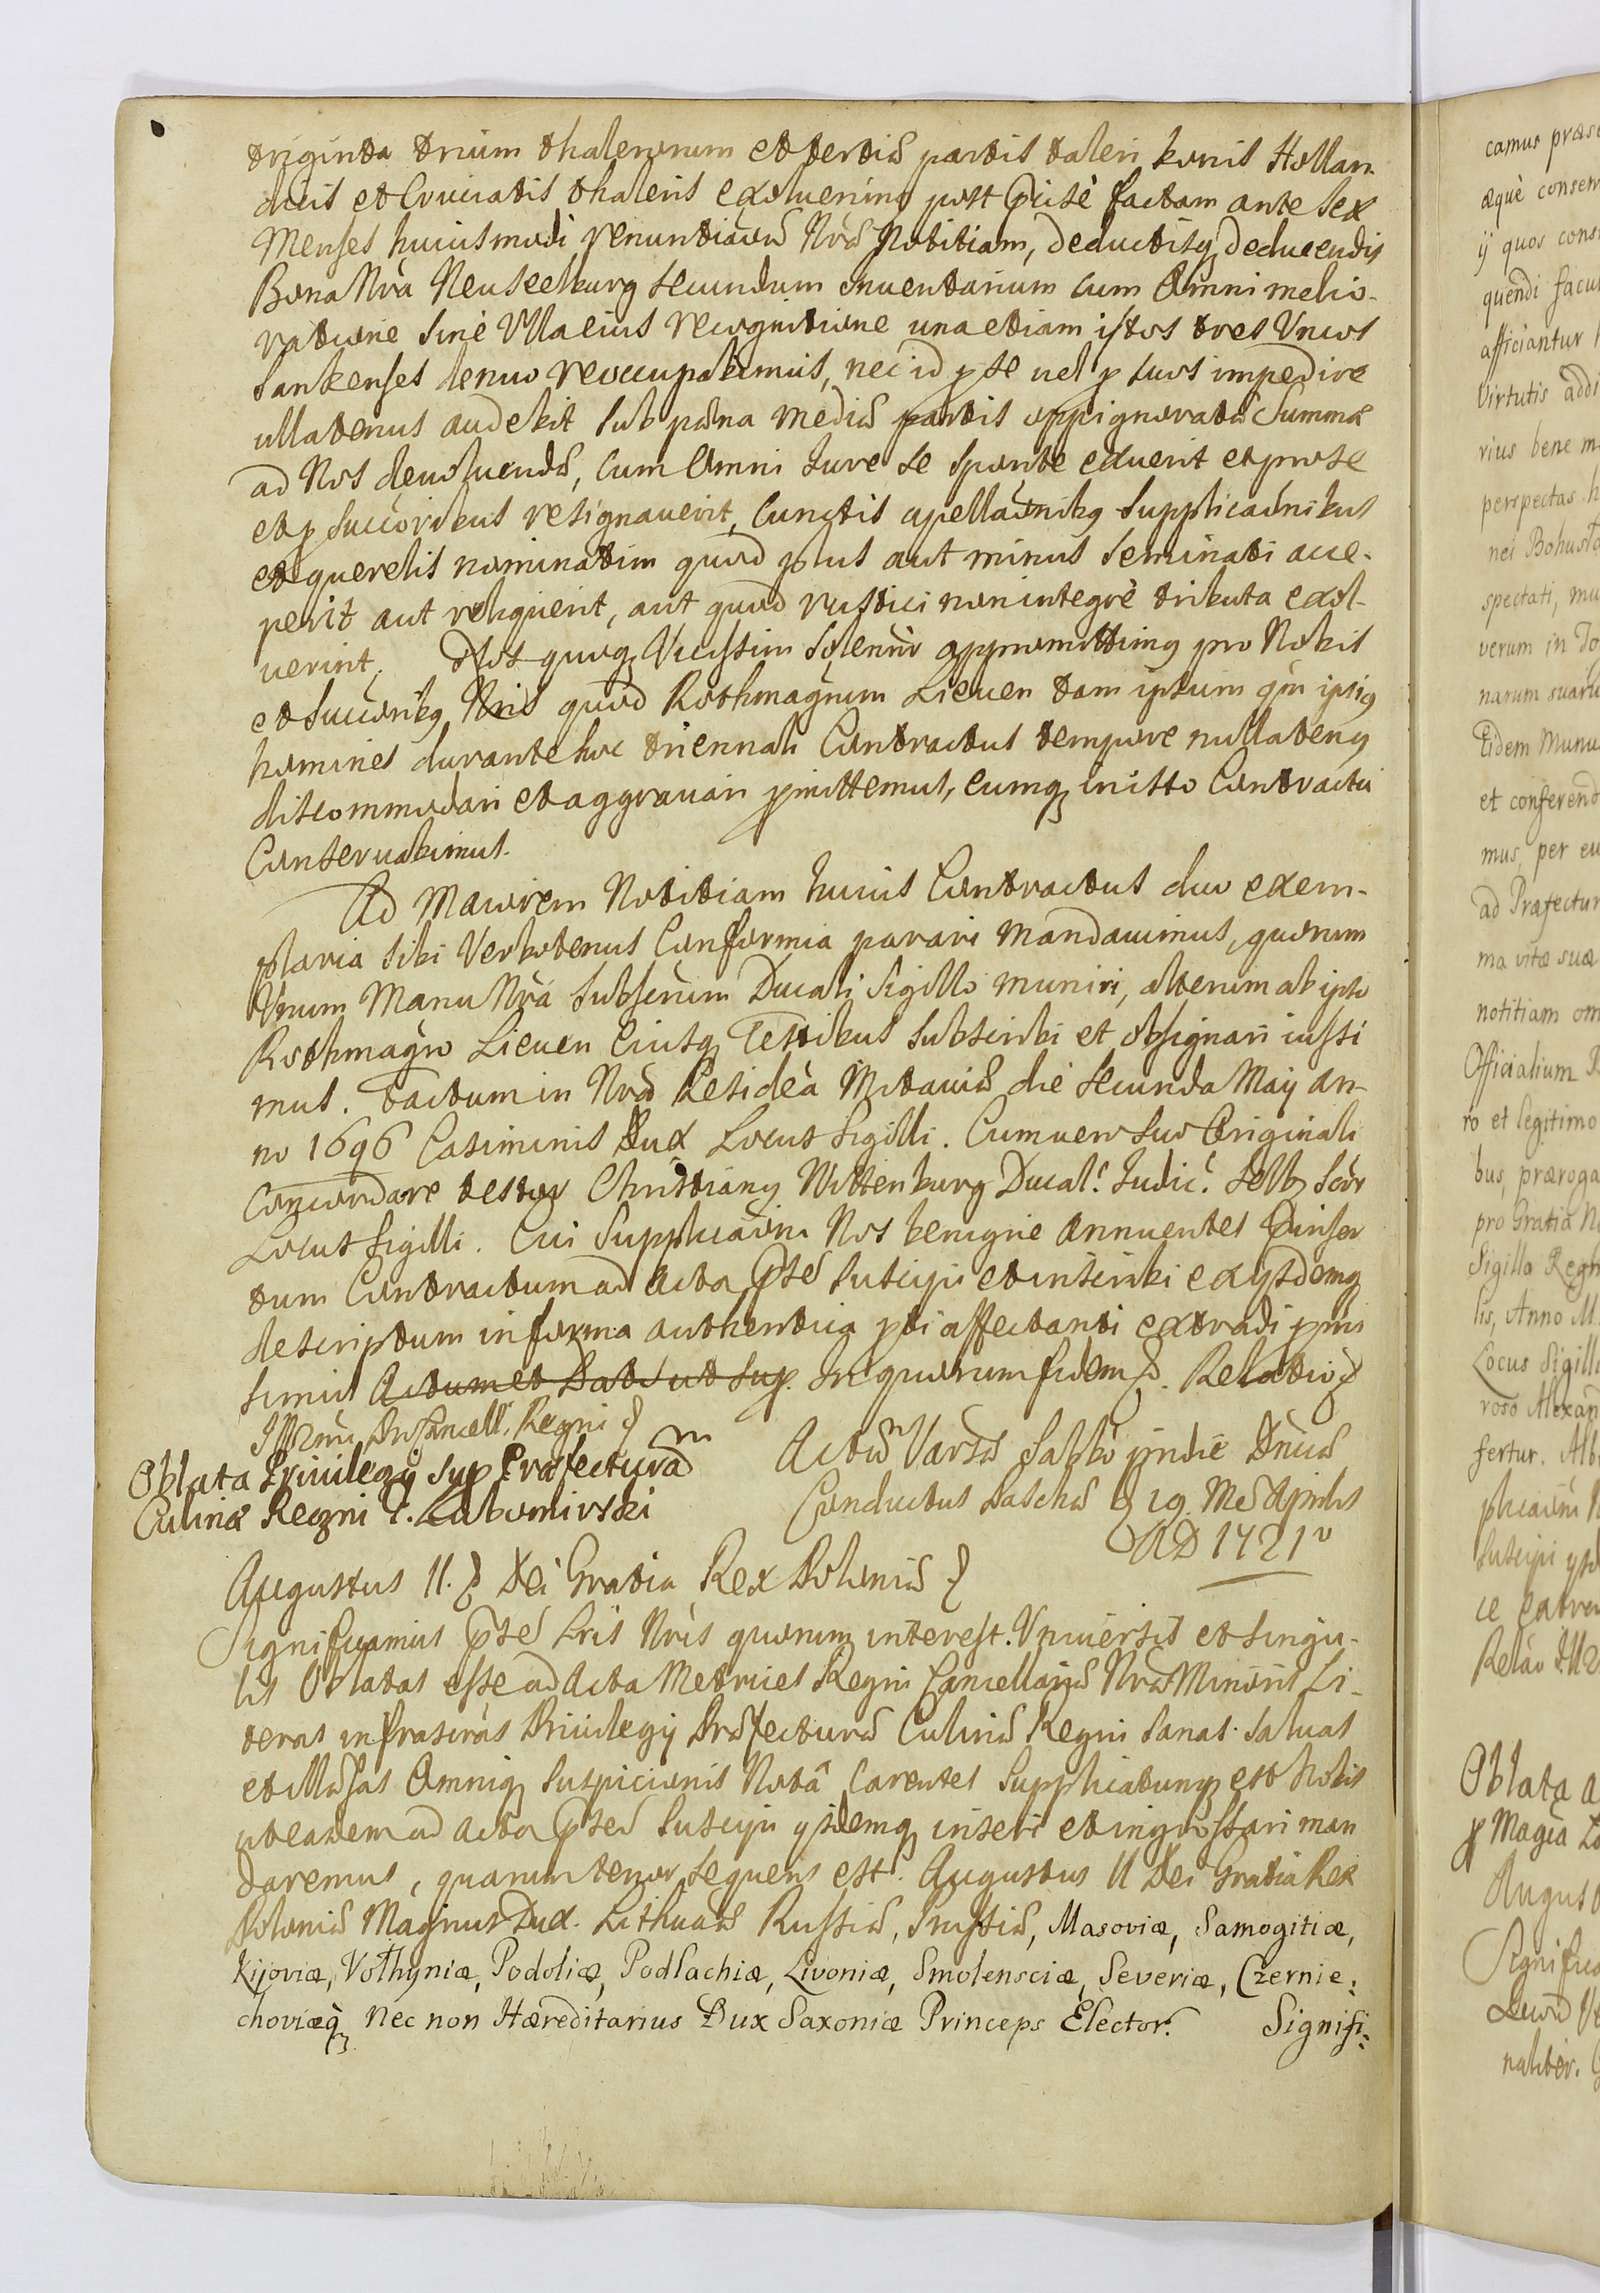 triginta trium thalerorum et tertiæ partis taleri bonis Hollan
dicis et Cruciatis thaleris exoluerimꝫ post præisè factam ante sex
Menses huiusmodi renuntiaonis Nræ Notitiam, deductisqꝫ deducendis
Bona Nra Neuseelburg secundum inuentarium cum Omni melio-
ratione sine Vlla eius recognitione una etiam istos tres Vncos
Sankenses denuo reoccupabimus, nec id p se uel p suos impedire
ullatenus audebit sub pæna mediæ partis oppignoratæ Summæ
ad Nos deuoluendæ, cum Omni Iure se sponte exuerit et pro se
et p Succoribus resignauerit, Cunctis apellaonibꝫ Supplicaonibus
et querelis nominatim quod plus aut minus Seminati acce-
perit aut reliquerit, aut quod rustici non integre tributa exol-
uerint, Nos quoqꝫ Vicissim Solenir appromittimꝫ pro Nobis
et Succoribꝫ Nris quod Rothmagrum Lieuen tam ipsum qm ipsiꝫ
homines durante hoc triennali Contractus tempore nullatenꝫ
discommodari et aggrauari pmittemus, eumqꝫ in isto Contractu
Conseruabimus.
Ad Maiorem Notitiam huius Contractus duo exem-
plaria sibi Verbotenus Conformia parari Mandauimus, quorum
Vnum Manu Nra Subscrum Ducali Sigillo muniri, alterum ab ipso
Rothmagro Lieuen Eiusqꝫ Testibus Subscribi et obsignari iussi
mus. Factum in Nra Residea Mitauiæ die secunda Maij an-
no 1696 Casimirus Dux Locus Sigilli. Cum uero suo Originali
Concordare testor Christianꝫ Wittenburg Ducal. Iudic. Selb. Secr
Locus Sigilli. Cui Supplicaoni Nos benigne annuentes præinser
tum Contractum ad Acta præsē suscipi et inscribi exysdemqꝫ
descriptum in forma authentica pti affectanti extradi pmi
simus Actum et Dat ut sup. In quorum fidem &. Relatio &
Illmi Procancell. Regni &
Actū Varsæ Sabbo pridie Dnicæ
Conductus Paschæ d 19. Mē Aprilis
AD 1721º
Oblata Priuilegij sup Præfecturam
Culinæ Regni G. Lubomirski
Augustus II. & Dei Gratia Rex Poloniæ &
Significamus præsē Lris Nris quorum interest. Vniuersis et singu-
lis Oblatas esse ad Acta Metrices Regni Cancellariæ Nræ Minoris Li-
teras infrascras Priuilegij Præfecturæ Culinæ Regni Sanas. Saluas
et illæsas Omniqꝫ Suspicionis Notâ Carentes Supplicatumqꝫ est Nobis
ut easdem ad Acta præsē suscipi ysdemqꝫ inseri et ingrossari man
daremus, quarum tenor sequens est. Augustus II Dei Gratia Rex
Poloniæ Magnus Dux. Lithuaæ Russiæ, Prussiæ, Masoviæ, Samogitiæ,
Kijoviæ, Volhyniæ, Podoliæ, Podlachiæ, Livoniæ, Smolensciæ, Severiæ, Czernie:
choviæqꝫ nec non Hæreditarius Dux Saxoniæ Princeps Elector. Signifi:
camus
æque consen
ij quos cons
quendi facu
afficiantur
Virtutis addi
rius bene m
perspectas
nei Bohusl
spectati, mu
verum in
narum suaru
Eidem Munu
et conferend
mus, per eu
ad Præfectur
ma vitæ suæ
notitiam om
Officialium R
ro et legitimo
bus, præroga
pro Gratia
Sigillo Regn
lis, Anno M
Locus Sigill
roso Alexan
fertur.
suscipi
Oblata a
p Magia
August
Significa
naliter.